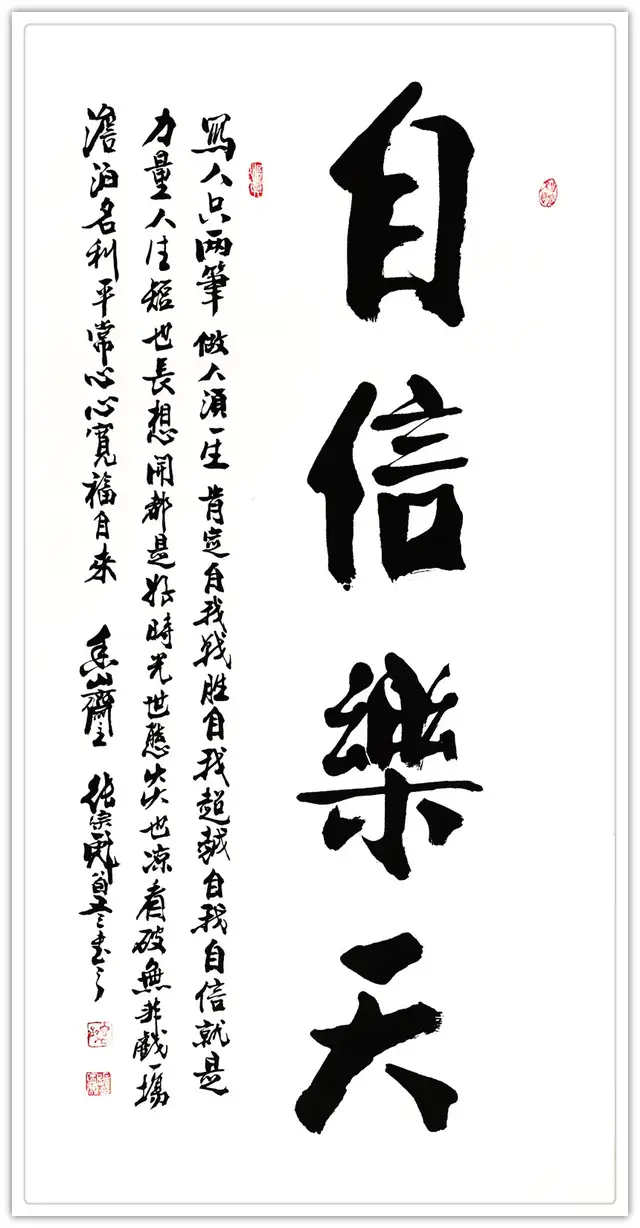 自信樂天
寫人只兩筆做人須一生肯定自我戰胜自我超越自我自信就是
力量人生短也長想開都是好時光世態炎也凉看破無非戲一場
澹泊名利平常心心寬福自來 香山齋主 張宗彪